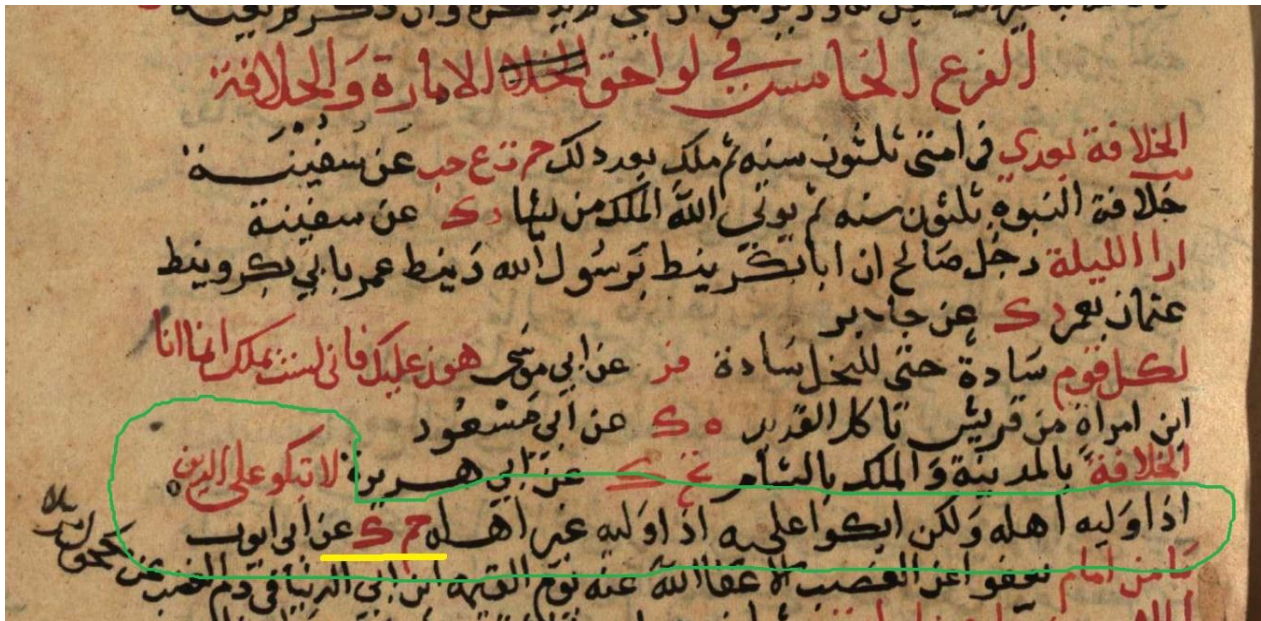 الفرع الخامس في لواحق الخلا الامارة والخلافة
الخلافة بعدي في امتي ثلثون سنه ثم ملك بعد ذلك حم ت ع حب عن سفينة
خلافة النبوه ثلثون سنه ثم يوتي الله الملك من يشا د ك عن سفينة
ارا الليلة رجل صالح ان ابا بكر ينط برسول الله وينط عمر بابي بكر وينط
عثمان بعمر د ك عن جابر
لكل قوم سادة حتى للنحل سادة فر عن ابي موسى هون عليك فاني لست بملك انما انا
ابن امراة من قريش تاكل القديد ه ك عن ابي مسعود
الخلافة بالمدينة والملك بالشام تخ ك عن ابي هريرة لا تبكو على الدين
اذا وليه اهله ولكن ابكوا عليه اذا وليه غير اهله حم ك عن ابي ايوب
ما من امام يعفوا عند الغضب الا عفا الله عنه يوم القيمة ابن ابي الدنيا في ذم الغضب عن مكحول